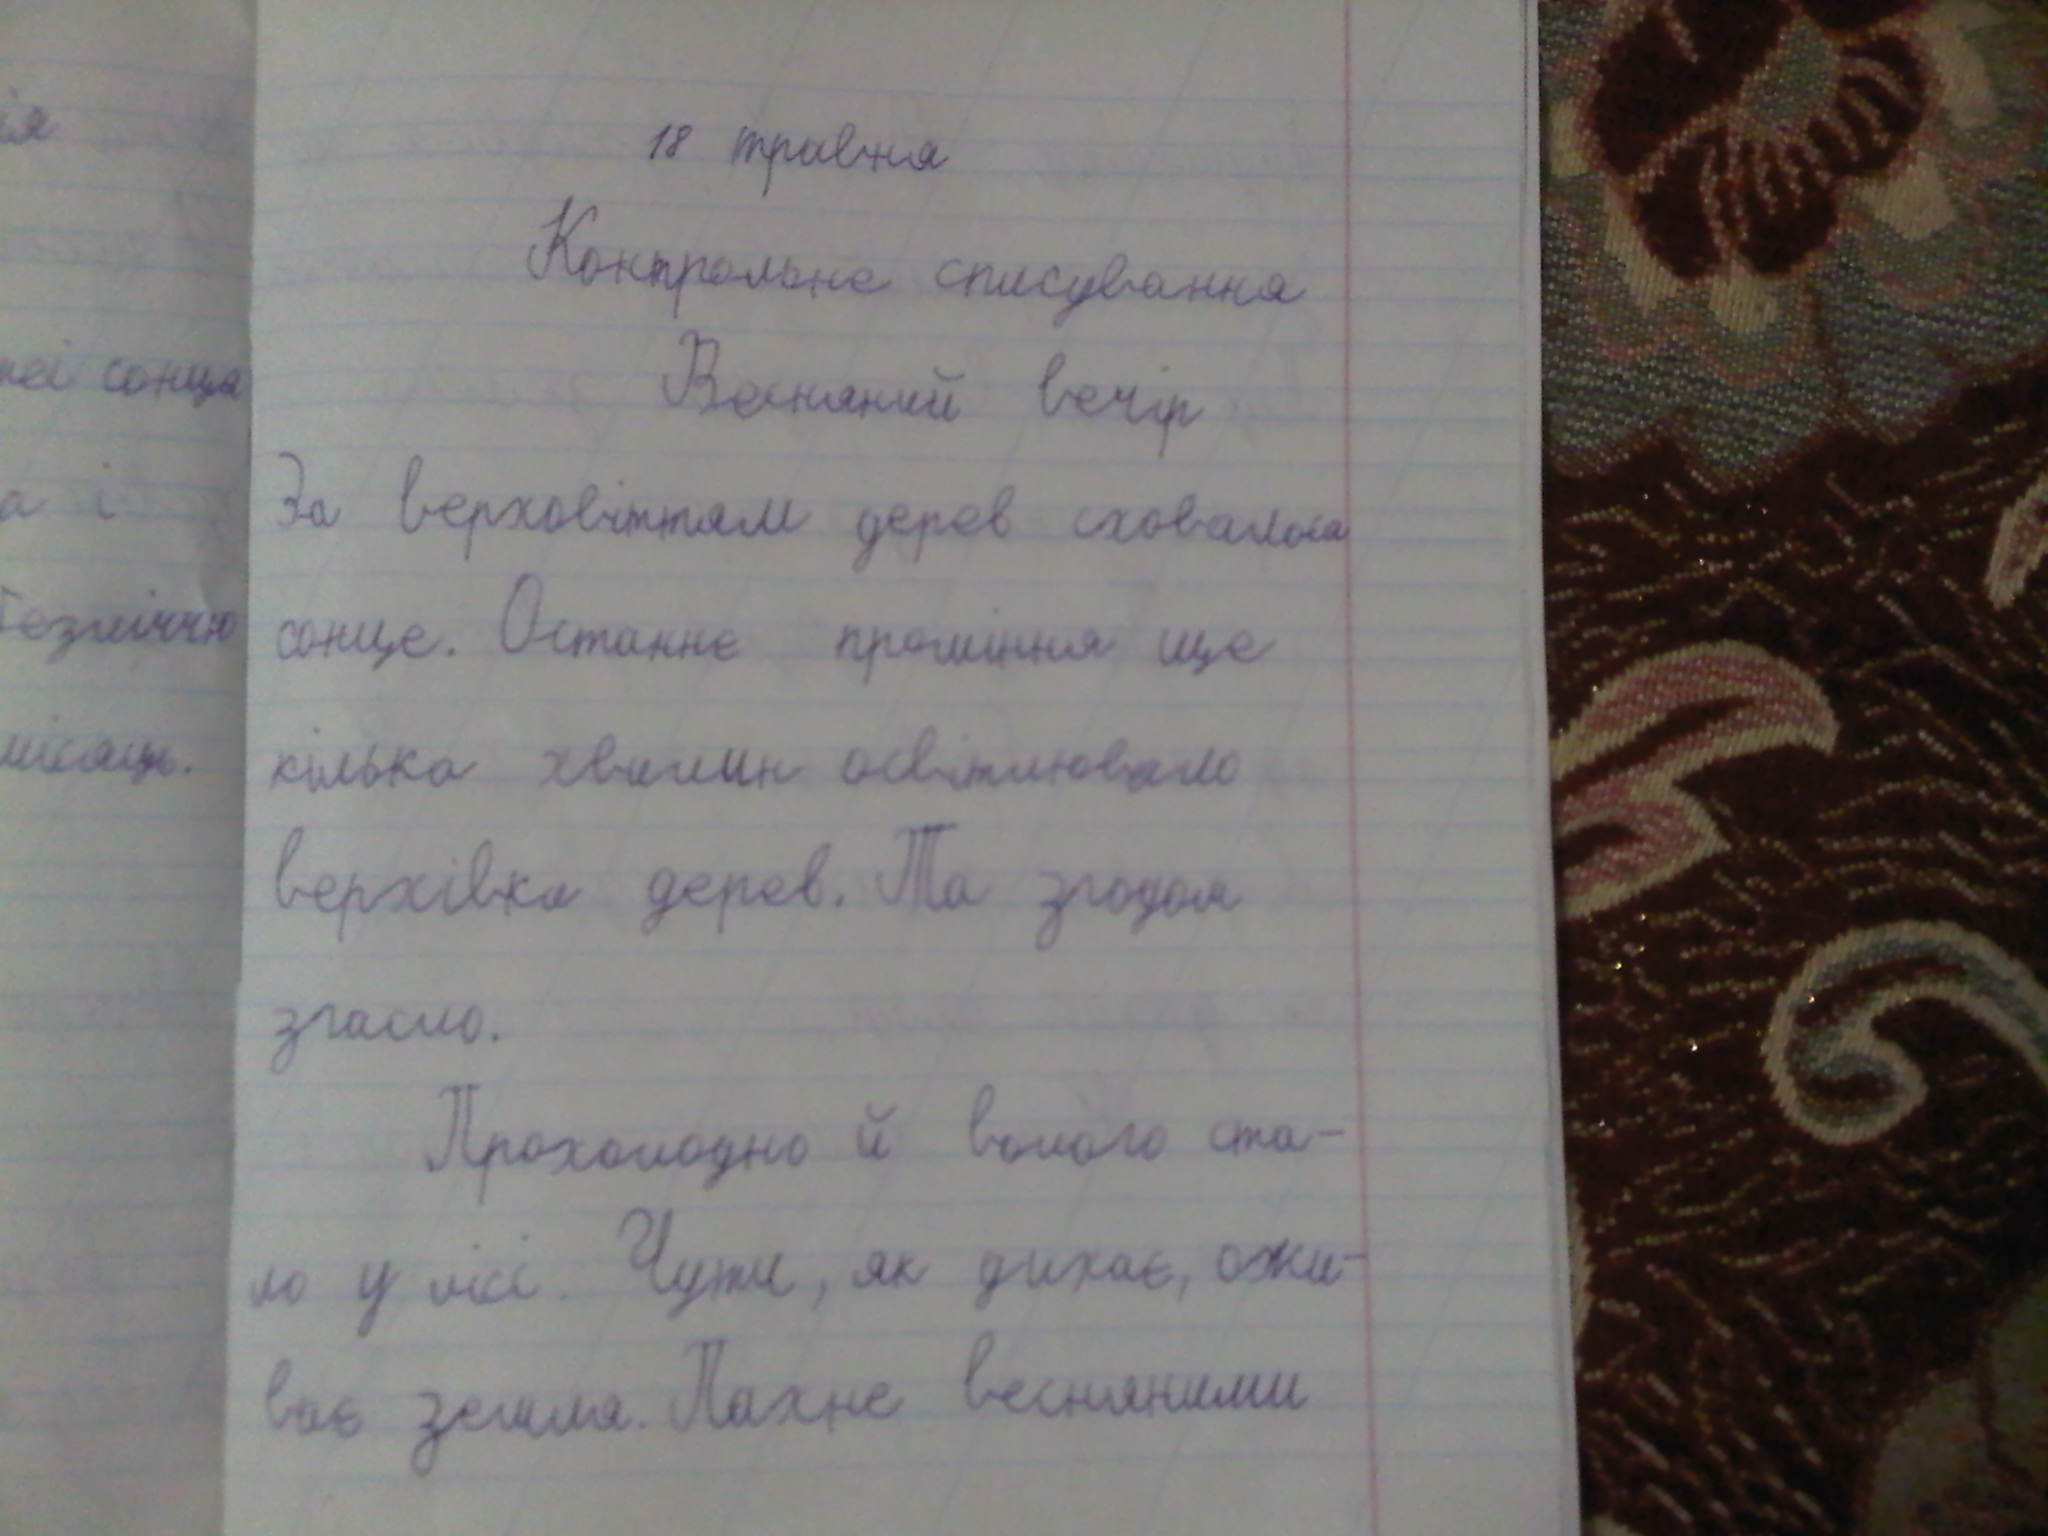 ія
ної сонця
а і
безліччю
місяць.
18 травня
Контрольне списування
Весняний вечір
За верховіттям дерев сховалося
сонце. Останнє проміння ще
кілька хвилин освітлювало
верхівки дерев. Та згодом
згасло.
Прохолодно й волого ста-
ло у лісі. Чути, як дихає, ожи-
ває земля. Пахне весняними